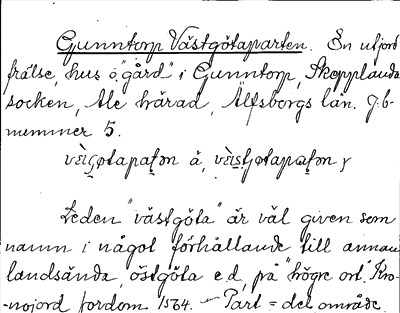 Gunntorp Västgötaparten. En utjord
frälse, hus o. "gård" i Gunntorp, Skepplanda
socken, Ale härad, Älfsborgs län. J.b-
nummer 5.
vä̀i
Leden "västgöta" är väl given som
namn i något förhållande till annan
landsända, östgöta e.d, på "högre ort". Kro-
-nojord fordom 1564. – Part = del område.